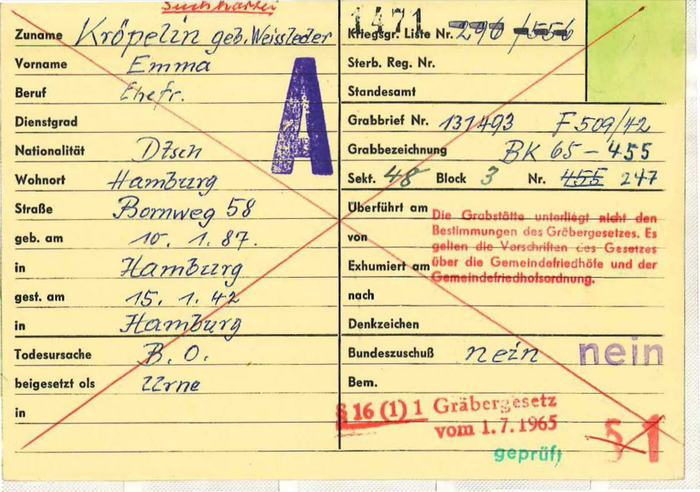 Suchkartei
Zuname Kröpelin geb. Weissleder
Vorname Emma
Beruf Ehefr.
Dienstgrad
Nationalität Dtsch
Wohnort Hamburg
Straße Bornweg 58
geb. am 10. 1. 87.
in Hamburg
gest. am 15. 1. 42
in Hamburg
Todesursache B. O.
beigesetzt als Urne
in
A
1471
Kriegsgr. Liste Nr. 290 /556
Sterb. Reg. Nr.
Standesamt
Grabbrief Nr. 131493 F 509/42
Grabbezeichnung BK 65-455
Sekt. 48 Block 3 Nr. 455 247
Überführt am
von
Exhumiert am
nach
Die Grabstätte unterliegt nicht den
Bestimmungen des Gräbergesetzes. Es
gelten die Vorschriften des Gesetzes
über die Gemeindefriedhöfe und der
Gemeindefriedhofsordnung.
Denkzeichen
Bundeszuschuß nein nein
Bem.
§ 16 (1) 1 Gräbergesetz
vom 1.7.1965
geprüft
§ 1